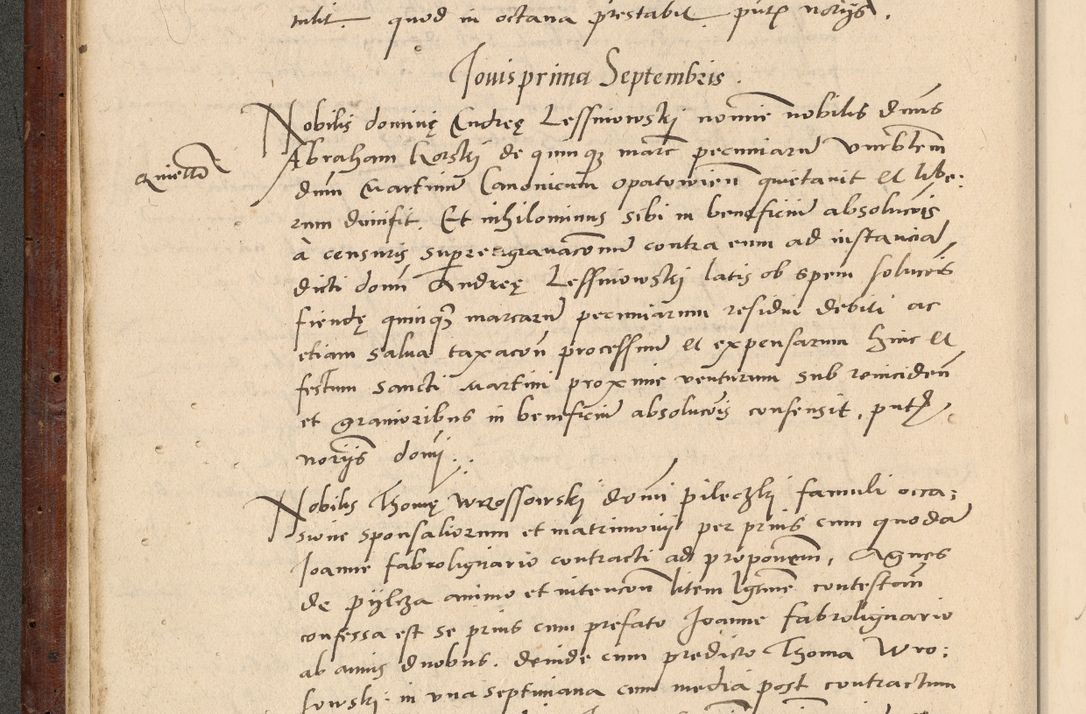 tulit quod in octava prestabit putꝭ norijs.
Jovis prima Septembris.
Nobilis dominę Andreę Lessniowskj nomīe nobilis dmīs
Quietā
Abraham Korskj de quinqȝ marc̄ pecuniarū Vnrblēm
dnm̄ Martinū Canonicum opatovien̄ quietavit et libe:
rum dimisit. Et nihilominus sibi in beneficiū absoluc̄ois
a censuris suprꝛegravac̄onū contra eum ad instanciā
dicti domī Andreę Lessniowskj latis ob spem soluc̄ois
fiendę quinqȝ marcarū pecuniarum residui debiti ac
etiam salva taxac̄on̄ processuū et expensarum hinc et
festum sancti Martini proxime venturum sub reinciden̄
et gravioribus in beneficiū absoluc̄ois consensit, putꝭ
norijs domī.
Nobilis Thomę Wrossowskj domī pileczkj famuli occa:
sione sponsaliorum et matrimonij per prius cum quodā
Joanne fabrolignario contracti ad proponen̄m, Agnes
de Pijlcza animo et intencon̄ litem lgtm̄e contestan̄
confessa est se prius cum prefato Joanne fabrolignario
ab annis duobus. deinde cum predicto Thoma Wro:
sowskj in una septimana cum media post contractum